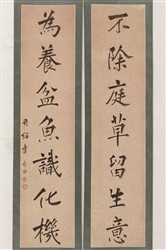 不除庭草留生意
為養盆魚識化機